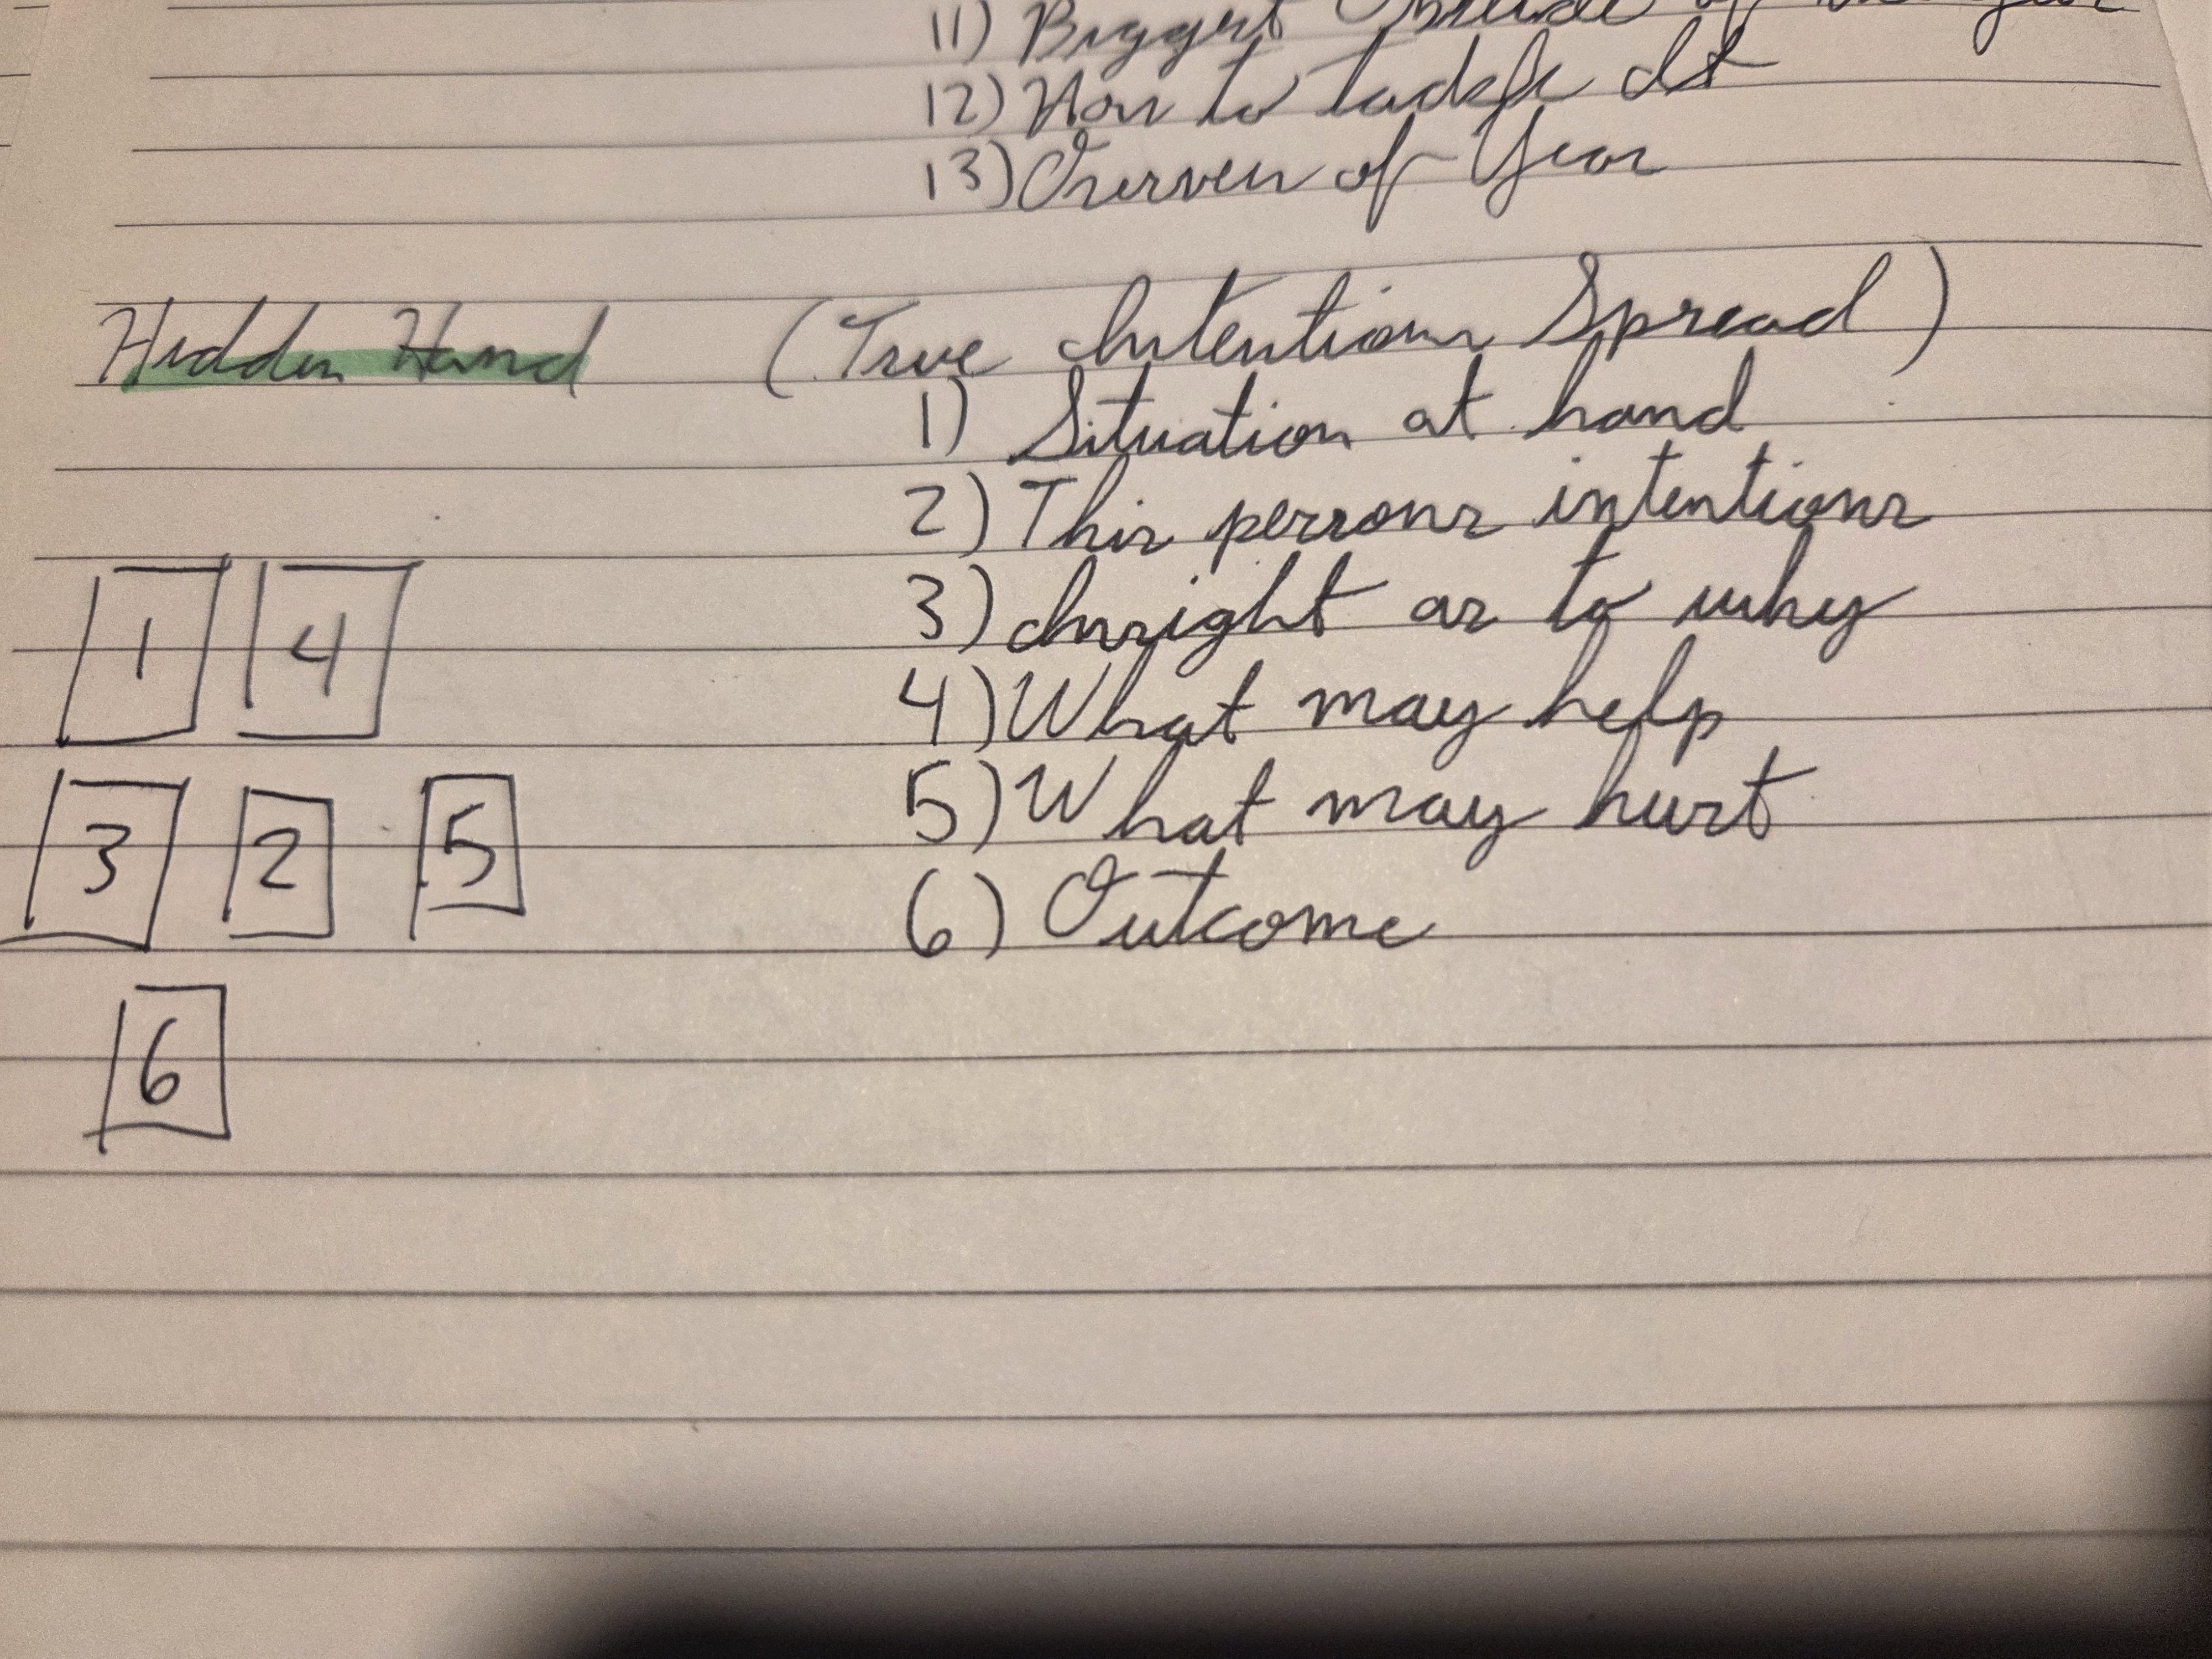 11) Biggest of
12) How to tackle It
13) Overview of Year
Hidden Hand (True Intentions Spread)
1) Situation at hand
2) This persons intentions
3) Insight as to why
4) What may help
5) What may hurt
6) Outcome
1 4
3 2 5
6